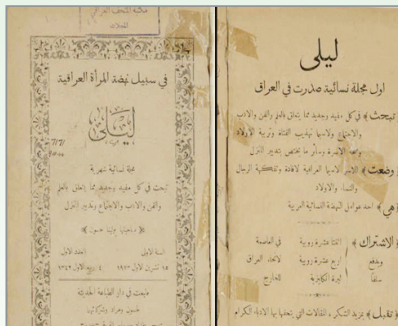 مكتبة المتحف العراقي
في سبيل نهضة المرأة العراقية
ليلى
مجلة نسائية شهرية
تبحث في كل مفيد وجديد مما يتعلق بالعلم
والفن والادب والاجتماع وتدبير المنزل
السنة الاولى
العدد الاول
١٥ تشرين الاول ١٩٢٣
طبعت في دار الطباعة الحديثة
ليلى
اول مجلة نسائية صدرت في العراق
تبحث في كل مفيد وجديد مما يتعلق بالعلم والفن والادب
والاجتماع ولاسيما تهذيب الفتاة وتربية الاولاد
وصحة الاسرة وسائر ما يختص بتدبير المنزل
وضعت
الاسر لاسيما العراقية لافادة وتفكهة الرجال
والنساء والاولاد
هي احد عوامل النهضة النسائية العربية
الاشتراك
اثنتا عشرة روبية في العاصمة
ويدفع
اربع عشرة روبية لانحاء العراق
سلفاً
ليرة انكليزية للخارج
تقبل بمزيد الشكر المقالات التي يتحفها بها الادباء الكرام